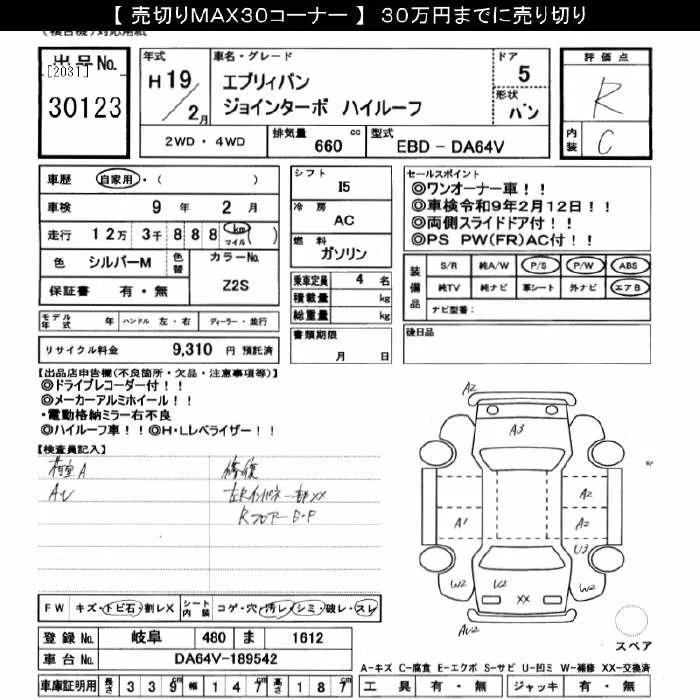 【 売切りMAX30コーナー 】 30万円までに売り切り
出品No.
[2031]
30123
年式
H19/2月
車名・グレード
エブリィバン
ジョインターボ ハイルーフ
ドア
5
形状
バン
評価点
R
内装
C
2WD・4WD
排気量 660 cc
型式 EBD-DA64V
車歴 自家用・( )
車検 9 年 2 月
走行 12万 3千 888 km マイル ( )
色 シルバーM 色替
カラーNo. Z2S
保証書 有・無
シフト
I5
冷房
AC
燃料
ガソリン
乗車定員 4 名
積載量 kg
総重量 kg
書類期限
月 日
セールスポイント
◎ワンオーナー車!!
◎車検令和9年2月12日!!
◎両側スライドドア付!!
◎PS PW(FR)AC付!!
装備品
S/R 純A/W P/S P/W ABS
純TV 純ナビ 革シート 外ナビ エアB
ナビ型番:
後日品
モデル年式 年 ハンドル 左・右 ディーラー・並行
リサイクル料金 9,310 円 預託済
【出品店申告欄(不良箇所・欠品・注意事項等)】
◎ドライブレコーダー付!!
◎メーカーアルミホイール!!
・電動格納ミラー右不良
◎ハイルーフ車!!◎H・Lレベライザー!!
【検査員記入】
AU
修復
Rフロアー
A2
A3
A2
A1
A2
U3
W2
U2
XX
W2
AU2
スペア
FW キズ・トビ石・割レX
シート内装 コゲ・穴・汚レ・シミ・破レ・スレ
登録No. 岐阜 480 ま 1612
車台No. DA64V-189542
A-キズ C-腐食 E-エクボ S-サビ U-凹ミ W-補修 XX-交換済
車庫証明用 長さ 339 幅 147 高さ 187
工具 有・無 ジャッキ 有・無